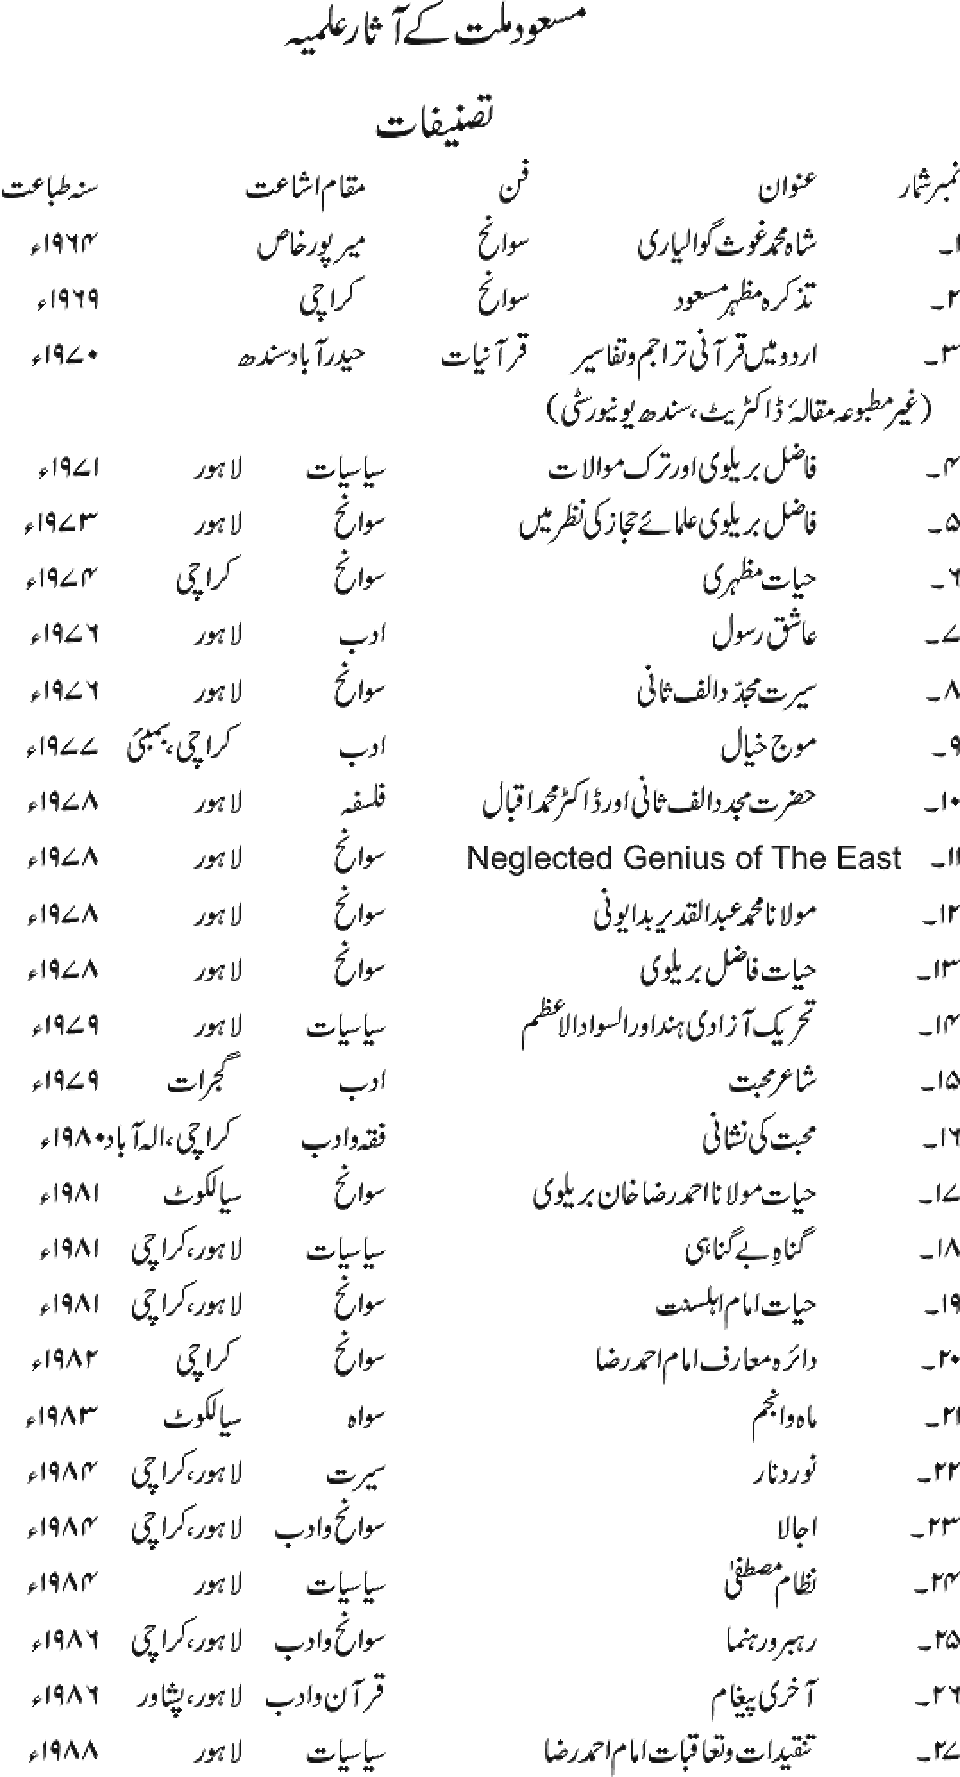 مسعود ملت کے آثار علمیہ
تصنیفات
نمبر شمار عنوان فن مقام اشاعت سنہ طباعت
۱۔ شاہ محمد غوث گوالیاری سوانح میر پور خاص ۱۹۶۴ء
۲۔ تذکرہ مظہر مسعود سوانح کراچی ۱۹۶۹ء
۳۔ اردو میں قرآنی تراجم و تفاسیر قرآنیات حیدرآباد سندھ ۱۹۷۰ء
(غیر مطبوعہ مقالۂ ڈاکٹریٹ، سندھ یونیورسٹی)
۴۔ فاضل بریلوی اور ترک موالات سیاسیات لاہور ۱۹۷۱ء
۵۔ فاضل بریلوی علمائے حجاز کی نظر میں سوانح لاہور ۱۹۷۳ء
۶۔ حیات مظہری سوانح کراچی ۱۹۷۴ء
۷۔ عاشق رسول ادب لاہور ۱۹۷۶ء
۸۔ سیرت مجدّد الف ثانی سوانح لاہور ۱۹۷۶ء
۹۔ موج خیال ادب کراچی، بمبئی ۱۹۷۷ء
۱۰۔ حضرت مجدد الف ثانی اور ڈاکٹر محمد اقبال فلسفہ لاہور ۱۹۷۸ء
۱۱۔ Neglected Genius of The East سوانح لاہور ۱۹۷۸ء
۱۲۔ مولانا محمد عبدالقدیر بدایونی سوانح لاہور ۱۹۷۸ء
۱۳۔ حیات فاضل بریلوی سوانح لاہور ۱۹۷۸ء
۱۴۔ تحریک آزادی ہند اور السواد الاعظم سیاسیات لاہور ۱۹۷۹ء
۱۵۔ شاعر محبت ادب گجرات ۱۹۷۹ء
۱۶۔ محبت کی نشانی فقہ و ادب کراچی، الہ آباد ۱۹۸۰ء
۱۷۔ حیات مولانا احمد رضا خان بریلوی سوانح سیالکوٹ ۱۹۸۱ء
۱۸۔ گناہِ بے گناہی سیاسیات لاہور، کراچی ۱۹۸۱ء
۱۹۔ حیات امام اہلسنت سوانح لاہور، کراچی ۱۹۸۱ء
۲۰۔ دائرہ معارف امام احمد رضا سوانح کراچی ۱۹۸۲ء
۲۱۔ ماہ و انجم سواہ سیالکوٹ ۱۹۸۳ء
۲۲۔ نور دنار سیرت لاہور، کراچی ۱۹۸۴ء
۲۳۔ اجالا سوانح و ادب لاہور، کراچی ۱۹۸۴ء
۲۴۔ نظام مصطفیٰ سیاسیات لاہور ۱۹۸۴ء
۲۵۔ رہبر و رہنما سوانح و ادب لاہور، کراچی ۱۹۸۶ء
۲۶۔ آخری پیغام قرآن و ادب لاہور، پشاور ۱۹۸۶ء
۲۷۔ تنقیدات و تعاقبات امام احمد رضا سیاسیات لاہور ۱۹۸۸ء